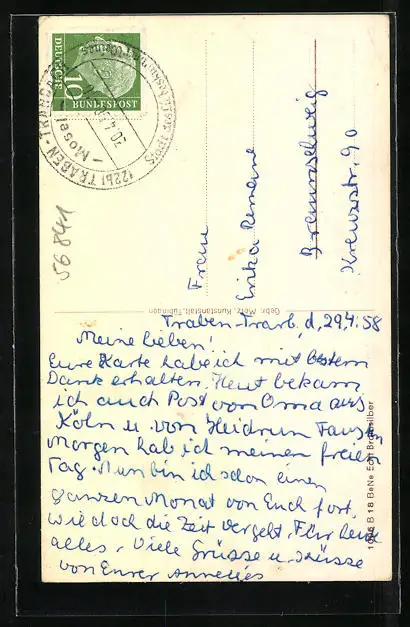 Traben-Trarb., d. 29.4.58
Meine Lieben!
Eure Karte habe ich mit bestem
Dank erhalten. Heut bekam
ich auch Post von Oma aus
Köln u. von Heidrun
Morgen hab ich meinen freien
Tag. Nun bin ich schon einen
ganzen Monat von Euch fort,
wie doch die Zeit vergeht. Für heute
alles. Viele Grüsse u. Küsse
von Eurer Annelies
Frau
Erika
Braunschweig
Kreuzstr. 90
DEUTSCHE
BUNDESPOST
10
(22b) TRABEN-TRARBACH
- Mosel -
30.4.58
56841
Gebr. Metz, Kunstanstalt, Tübingen
B 18 BeNe Echt Bromsilber